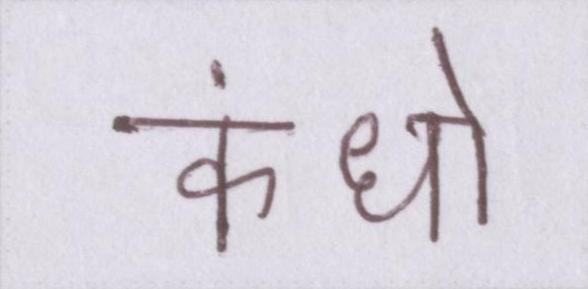 कंधो